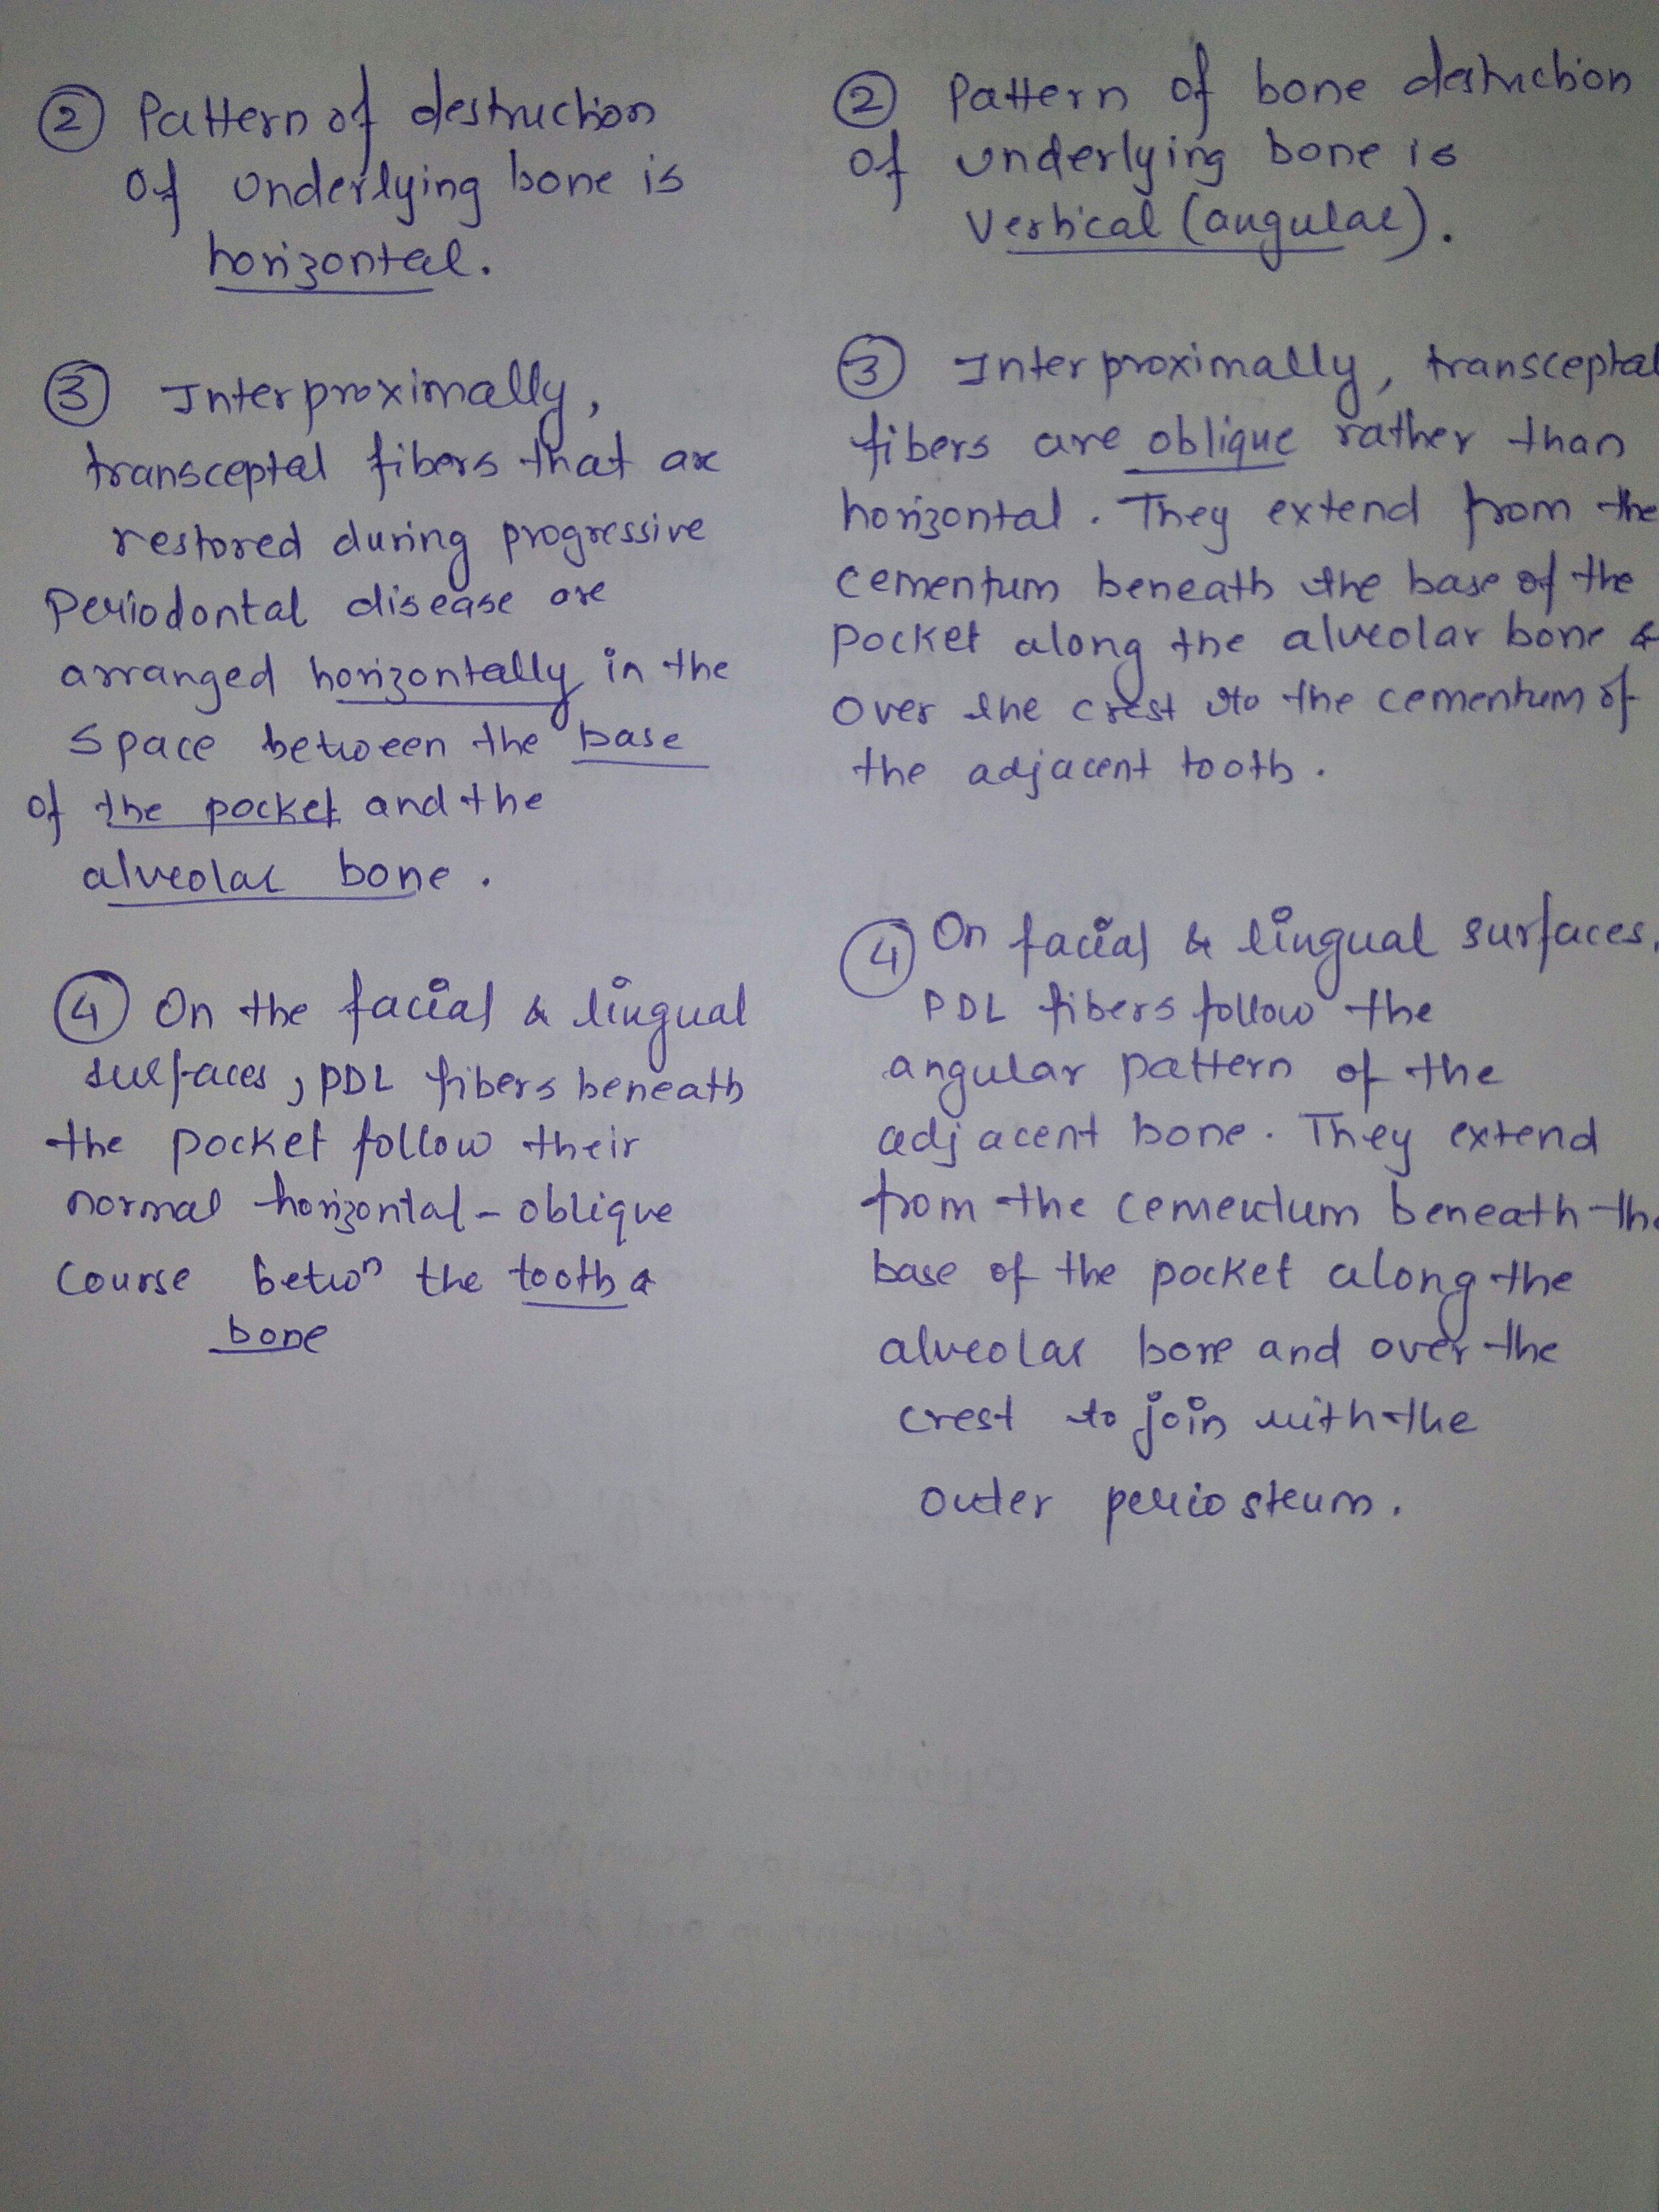 ② Pattern of destruction
of underlying bone is
horizontal.
③ Interproximally,
transceptal fibers that are
restored during progressive
Periodontal disease are
arranged horizontally in the
space between the base
of the pocket and the
alveolar bone.
④ On the facial & lingual
surfaces, PDL fibers beneath
the pocket follow their
normal horizontal - oblique
course betwn the tooth &
bone
② Pattern of bone destruction
of underlying bone is
Vertical (angular).
③ Interproximally, transceptal
fibers are oblique rather than
horizontal. They extend from the
cementum beneath the base of the
pocket along the alveolar bone &
over the crest to the cementum of
the adjacent tooth.
④ On facial & lingual surfaces,
PDL fibers follow the
angular pattern of the
adjacent bone. They extend
from the cementum beneath the
base of the pocket along the
alveolar bone and over the
crest to join with the
outer periosteum.